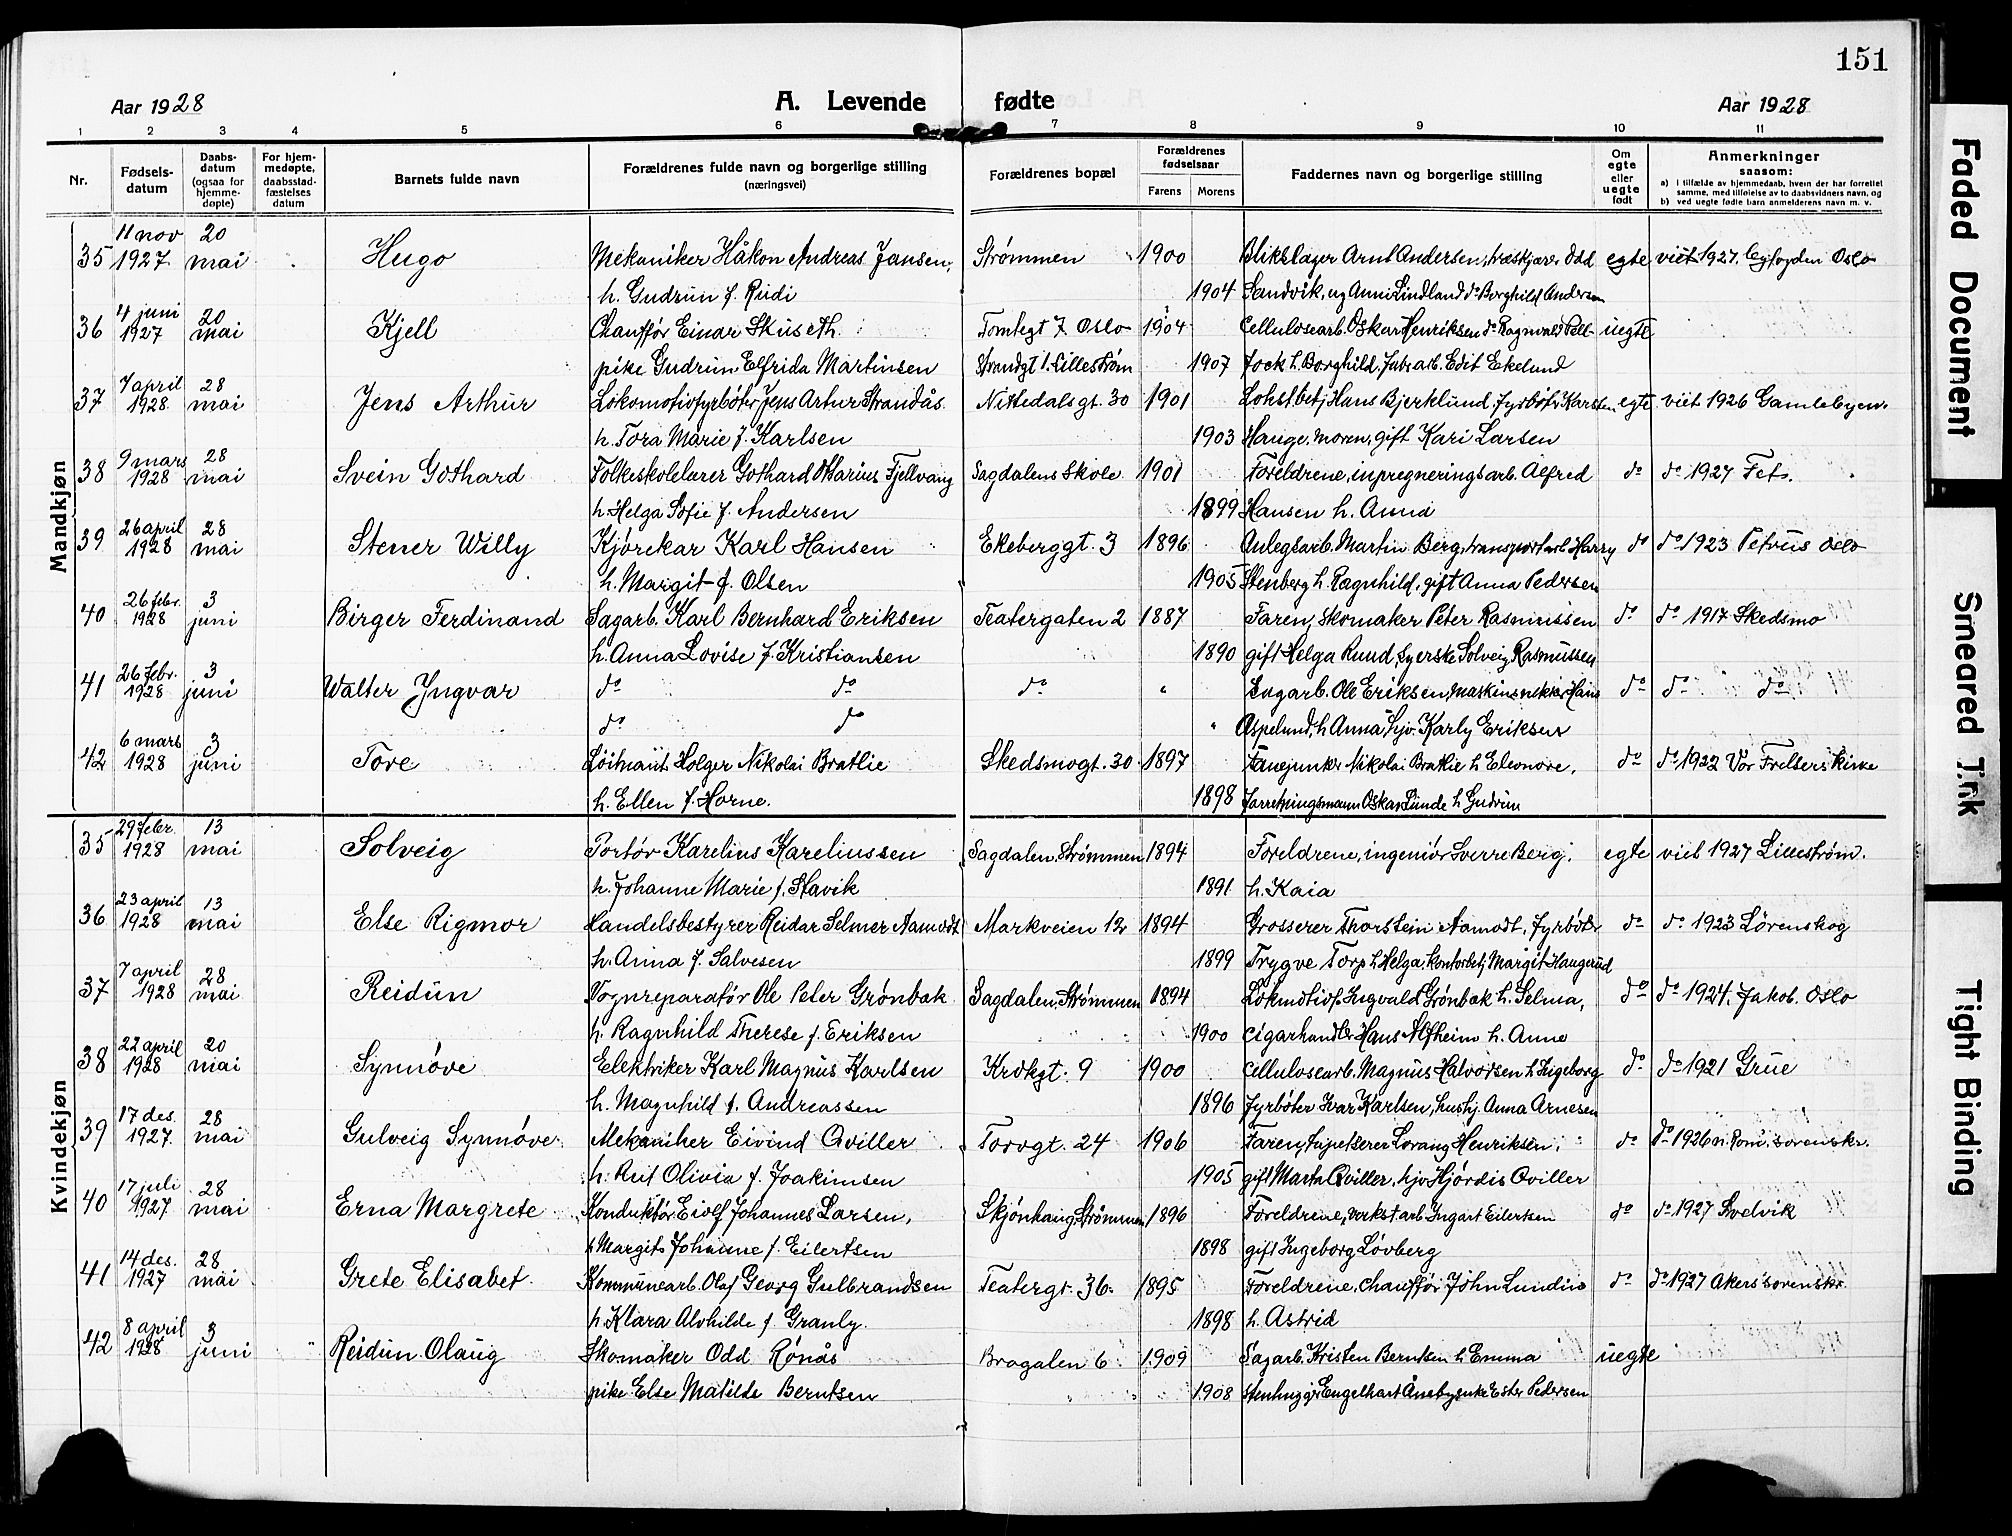 151
Aar 1928
A. Levende fødte
Aar 1928
1 2 3 4 5 6 7 8 9 10 11
Nr.
Fødsels-
datum
Daabs-
datum
(ogsaa for
hjemme-
døpte)
For hjem-
medøpte,
daabsstad-
fæstelses
datum
Barnets fulde navn
Forældrenes fulde navn og borgerlige stilling
(næringsvei)
Forældrenes bopæl
Forældrenes
fødselsaar
Farens Morens
Faddernes navn og borgerlige stilling
Om
egte
eller
uegte
født
Anmerkninger
saasom:
a) i tilfælde av hjemmedaab, hvem der har forrettet
samme, med tilføielse av to daabsvidners navn, og
b) ved uegte fødte barn anmelderens navn m. v.
Mandkjøn
11 nov 20
35 1927 mai Hugo Mekaniker Håkon Andreas Jansen, Strømmen 1900 Blikslager Arnt Andersen, Odd egte viet 1927. Byfogden Oslo
h. Gudrun f. Rudi 1904 Sandvik, ug Anni Lindland do Borghild Andersen
4 juni 20
36 1927 mai Kjell Chauffør Einar Skuseth. Tomtegt 7 Oslo 1904 Cellulosearb. Oskar Henriksen do Ragnvald uegte
pike Gudrun Elfrida Martinsen Strandgt 1. Lillestrøm 1907 h. Borghild, fabr.arb. Edit Ekelund
7 april 28
37 1928. mai Jens Arthur Lokomotivfyrbøter Jens Artur Strandås. Nittedalsgt. 30 1901 Hans Bjerklund, fyrbøt. Karsten egte viet 1926 Gamlebyen.
h. Tora Marie f. Karlsen 1903 Hauge, moren, gift Kari Larsen
9 mars 28
38 1928 mai Svein Gothard Folkeskolelærer Gothard Marius Fjellvang Sagdalens Skole 1901 Foreldrene, inpregneringsarb. Alfred do do 1927 Fet.
h. Helga Sofie f. Andersen 1899 Hansen h. Anna
26 april 28
39 1928 mai Stener Willy Kjørekar Karl Hansen Ekeberggt. 3 1896 Anlegsarb. Martin Berg, transportarb. Harry do do 1923 Petrus Oslo
h. Margit f. Olsen 1905 Stenberg h. Ragnhild, gift Anna Pedersen
26 febr. 3
40 1928 juni Birger Ferdinand Sagarb. Karl Bernhard Eriksen Teatergaten 2 1887 Faren, Skomaker Peter Rasmussen do do 1917 Skedsmo
h. Anna Lovise f. Kristiansen 1890 gift Helga Ruud, syerske Solveig Rasmussen
26 febr. 3
41 1928 juni Walter Yngvar do do do " Sagarb. Ole Eriksen, Hans do do do
do do " Aspelund, h. Anna, hjv. Karly Eriksen
6 mars 3
42 1928 juni Tore Løitnant Holger Nikolai Bratlie Skedsmogt. 30 1897 Fanejunker Nikolai Bratlie h. Eleonore, do do 1922 Vor Frelsers kirke
h. Ellen f. Horne. 1898 Forretningsmann Oskar Lunde h. Gudrun
Kvindekjøn
29 febr. 13
35 1928 mai Solveig Portør Karelius Kareliussen Sagdalen, Strømmen 1894 Foreldrene, ingeniør Sverre Berg. egte viet 1927 Lillestrøm.
h. Johanne Marie f. Stavik 1891 h. Kaia
23 april 13
36 1928 mai Else Rigmor Handelsbestyrer Reidar Selmer Aamodt Markveien 12 1894 Grosserer Thorstein Aamodt, fyrbøter do do 1923 Lørenskog
h. Anna f. Salvesen 1899 Trygve Torp h. Helga, kontorbetj Margit Haugerud
7 april 28
37 1928 mai Reidun Vognreparatør Ole Peter Grønbæk Sagdalen, Strømmen 1894 Lokmotivf. Ingvald Grønbæk h. Selma, do do 1924. Jakob. Oslo
h. Ragnhild Therese f. Eriksen 1900 Cigarhandler Hans Alfheim h. Anne
22 april 20
38 1928 mai Synnøve Elektriker Karl Magnus Karlsen Krokgt. 9 1900 Cellulosearb. Magnus Halvorsen h. Ingeborg do do 1921 Grue
h. Magnhild f. Andreassen 1896 Fyrbøter Ivar Karlsen, hushj. Anna Arnesen
17 des. 28
39 1927. mai Gulveig Synnøve Mekaniker Eivind Qviller Torvgt. 24 1906 Faren, tapetserer Lorang Henriksen, do do 1926 n. Rom. sorenskr.
h. Rut Olivia f. Joakimsen 1905 gift Marta Qviller, hjv Hjørdis Qviller
17 juli 28
40 1927 mai Erna Margrete Konduktør Eiolf Johannes Larsen, Skjønhaug, Strømmen 1896 Foreldrene, verkst.arb. Ingart Eilertsen do do 1927 Svelvik
h Margit Johanne f. Eilertsen 1898 gift Ingeborg Løvberg
14 des. 28
41 1927 mai Grete Elisabet Kommunearb. Olaf Georg Gulbrandsen Teatergt. 36. 1895 Foreldrene, Chauffør John Lundin do do 1927 Akers sorenskr.
h. Klara Alvhilde f. Granly. 1898 h. Astrid
8 april 3
42 1928 juni Reidun Olaug Skomaker Odd Rønås Brogaten 6 1909 Sagarb. Kristen Berntsen h Emma uegte
pike Else Matilde Berntsen 1908 Stenhugger Engelhart Ester Pedersen
Faded Document
Smeared Ink
Tight Binding